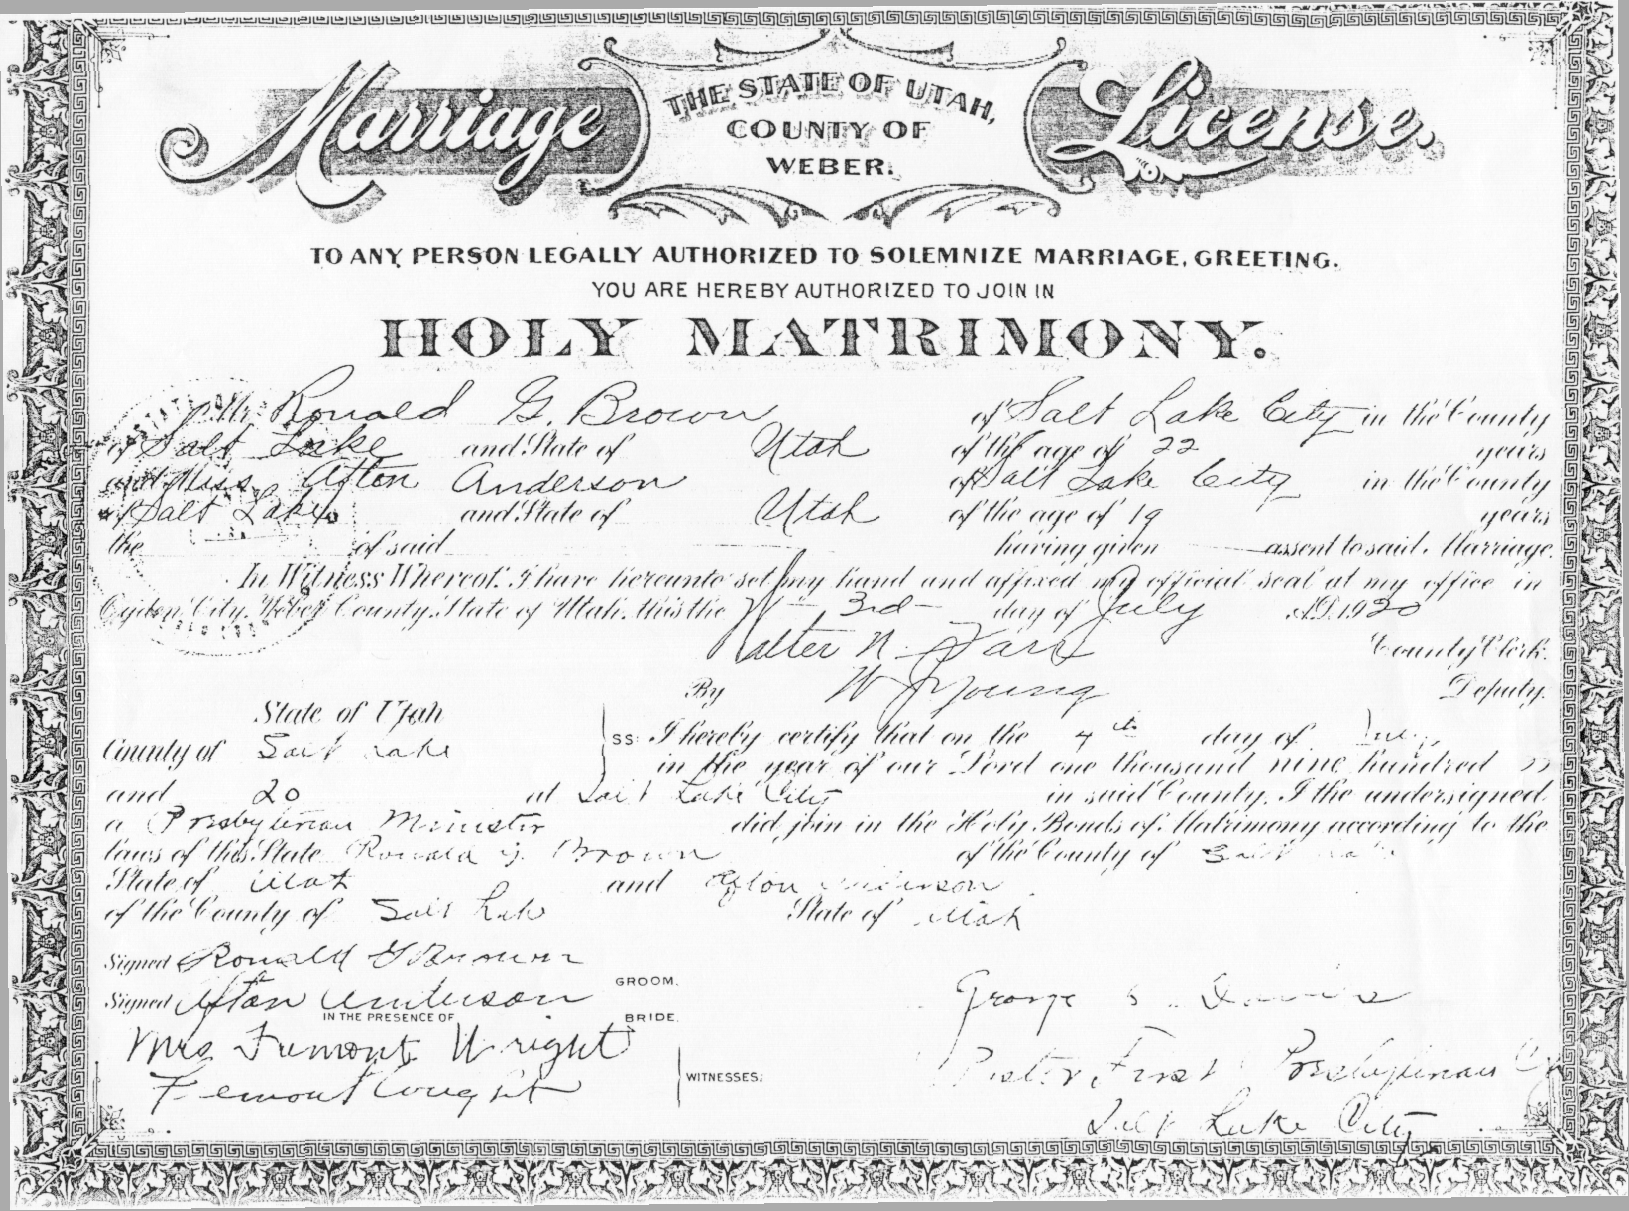 Marriage License.
THE STATE OF UTAH,
COUNTY OF
WEBER.
TO ANY PERSON LEGALLY AUTHORIZED TO SOLEMNIZE MARRIAGE, GREETING.
YOU ARE HEREBY AUTHORIZED TO JOIN IN
HOLY MATRIMONY.
Mr. Ronald G. Brown of Salt Lake City in the County
of Salt Lake and State of Utah of the age of 22 years
and Miss Afton Anderson of Salt Lake City in the County
of Salt Lake and State of Utah of the age of 19 years
the of said having given assent to said Marriage.
In Witness Whereof, I have hereunto set my hand and affixed my official seal at my office in
Ogden City, Weber County, State of Utah, this the 3rd day of July A.D. 1920
Walter N. Farr County Clerk.
By W J Young Deputy.
State of Utah
County of Salt Lake
SS I hereby certify that on the 4th day of
in the year of our Lord one thousand nine hundred
and 20 at Salt Lake City in said County, I the undersigned
a Presbyterian Minister did join in the Holy Bonds of Matrimony according to the
laws of this State Ronald G. Brown of the County of Salt Lake
State of Utah and Afton Anderson
of the County of Salt Lake State of Utah
Signed Ronald G Brown
GROOM.
Signed Afton Anderson
BRIDE.
IN THE PRESENCE OF
Mrs Fremont Wright
Fremont Wright
WITNESSES.
George E. Davies
Pastor First Presbyterian
Salt Lake City